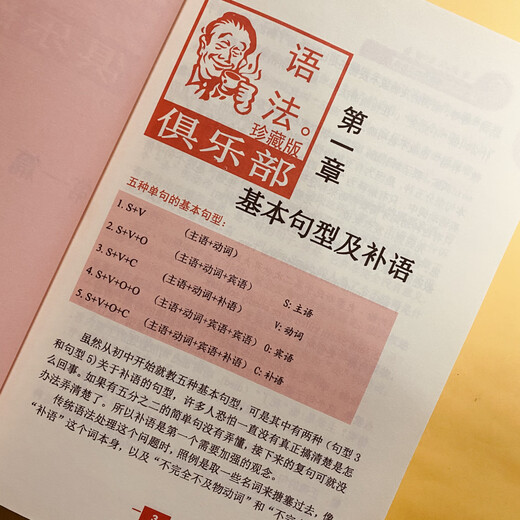 语法。
珍藏版
俱乐部
第一章
基本句型及补语
五种单句的基本句型:
1. S+V (主语+动词)
2. S+V+O (主语+动词+宾语) S: 主语
3. S+V+C (主语+动词+补语) V: 动词
4. S+V+O+O (主语+动词+宾语+宾语) O: 宾语
5. S+V+O+C (主语+动词+宾语+补语) C: 补语
虽然从初中开始就教五种基本句型,可是其中有两种(句型3
和句型5)关于补语的句型,许多人恐怕一直没有真正搞清楚是怎
么回事。如果有五分之二的简单句没有弄懂,接下来的复句可就没
办法弄清楚了。所以补语是第一个需要加强的观念。
传统语法处理这个问题时,照例是取一些名词来搪塞过去,像
“补语”这个词本身,以及“不完全不及物动词”和“不完
3